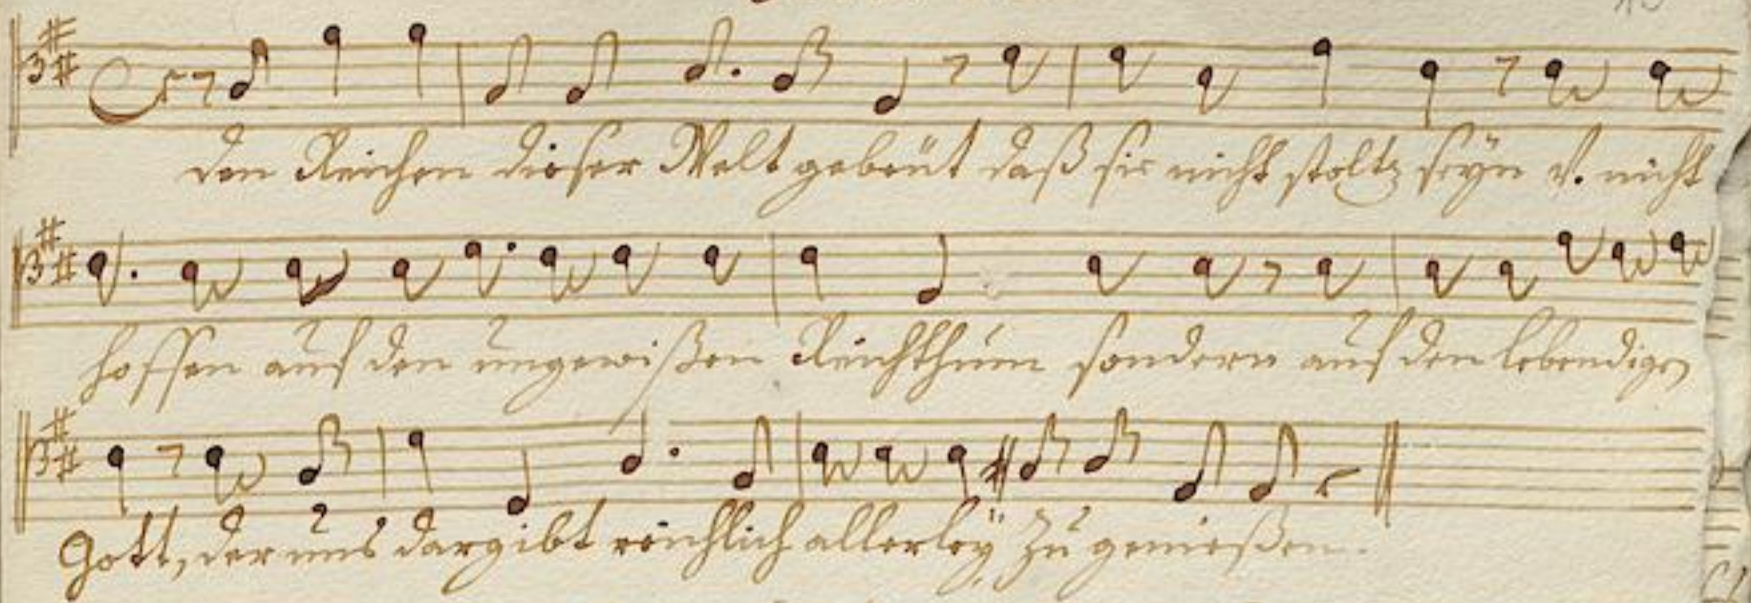 den Reichen dieser Welt gebeut daß sie nicht stoltz seyn v. nicht
hoffen auf den ungewißen Reichthum sondern auf den lebendigen
Gott, der uns dargibt reichlich allerley zu genießen.